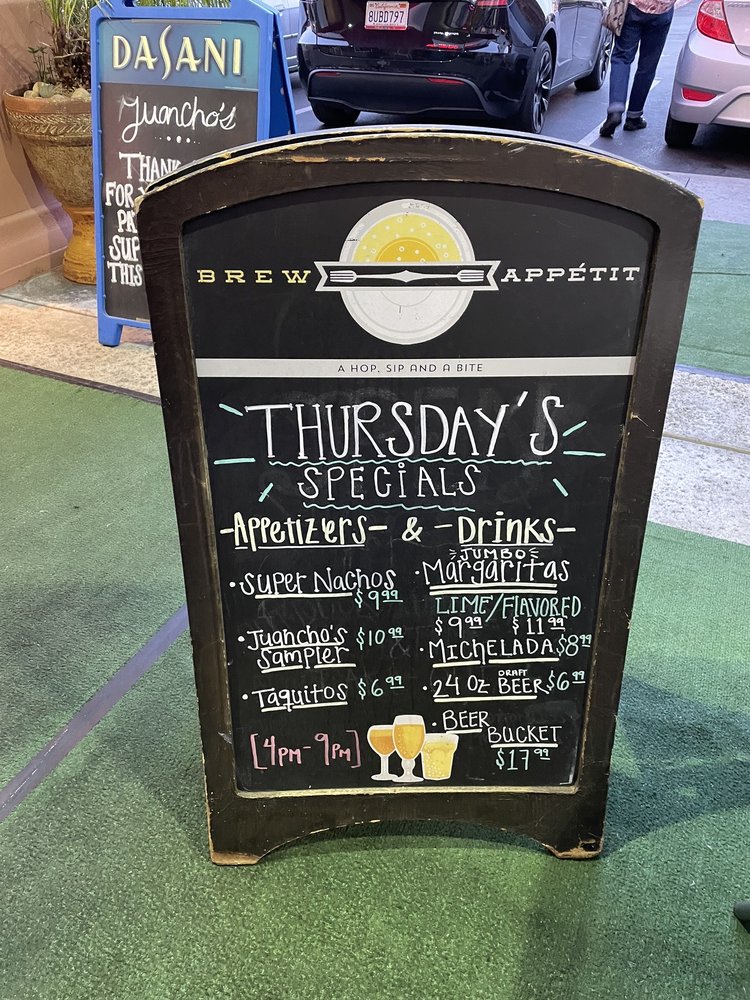 California
8UBD797
DASANI
Juancho's
THANK
FOR
BREW APPÉTIT
A HOP, SIP AND A BITE
THURSDAY'S
SPECIALS
-Appetizers- & -Drinks-
• Super Nachos
$9.99
• Juancho's
Sampler $10.99
• Taquitos $6.99
[4pm-9pm]
JUMBO
• Margaritas
LIME/FLAVORED
$9.99 $11.99
• MICHELADA $8.99
• 24 Oz DRAFT BEER $6.99
• BEER
BUCKET
$17.99